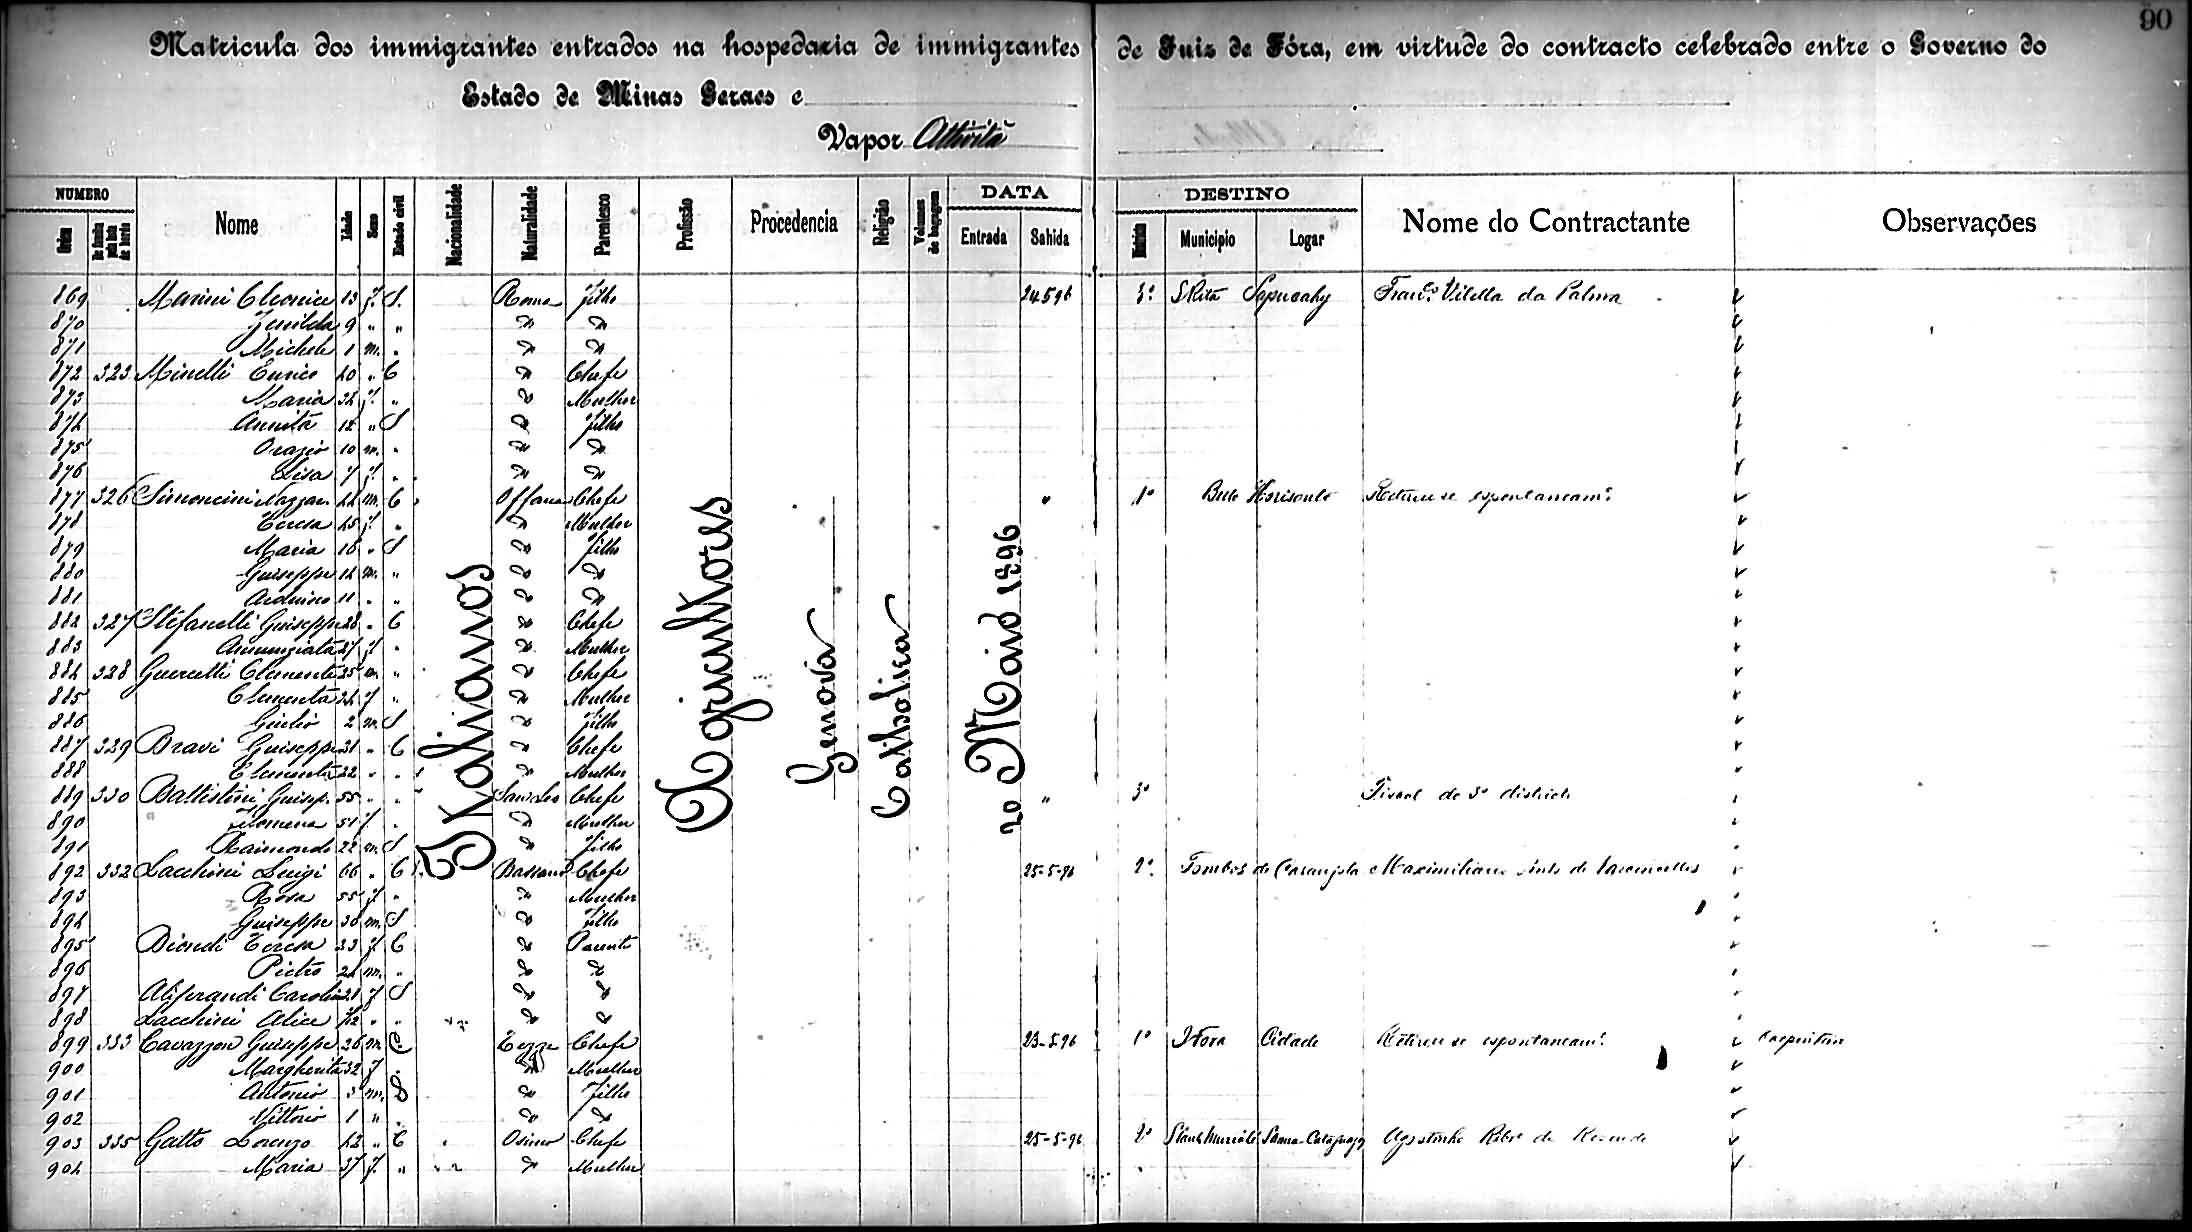 90
Matricula dos immigrantes entrados na hospedaria de immigrantes de Juiz de Fóra, em virtude do contracto celebrado entre o Governo do
Estado de Minas Geraes e
Vapor Attivitá
NUMERO DATA DESTINO
Ordem Nome Idade Sexo Estado civil Nacionalidade Naturalidade Parentesco Profissão Procedencia Religião Volumes de bagagem Entrada Sahida Districto Municipio Logar Nome do Contractante Observações
Italianos Agricultores Genova Catholica 20 Maio 1896
869 Marini Cleonice 13 f. S. Roma filho 24 5 96 3º S Rita Sapucahy Franco Vilella da Palma
870 9 " "
871 Michele 1 m. "
872 323 Minelli Enrico 40 " C Chefe
873 Maria 34 f. " Mulher
874 Annita 12 " S filho
875 Orazio 10 m. "
876 Lisa 7 f. "
877 326 Simoncini Nazzar. 44 m. C Offana Chefe " 1º Bello Horisonte Retirou se espontaneamte
878 Teresa 45 f. " Mulher
879 Maria 18 " S filho
880 Guiseppe 14 m. "
881 Arduino 11 " "
882 327 Stefanelli Guiseppe 28 " C Chefe
883 Annunziata 27 f. " Mulher
884 328 Guercetti Clemente 25 m. " Chefe
885 Clementa 24 f " Mulher
886 Giulio 2 m. S filho
887 329 Bravi Guiseppe 31 " C Chefe
888 22 " " Mulher
889 330 Battistini Guisep. 55 " " San Leo Chefe " 3º Fiscal do 3º districto
890 Filomena 51 f. " Mulher
891 Raimondo 22 m. S filho
892 332 Lacchini Luigi 66 " C Chefe 25-5-96 2º Tombos de Carangola Maximiliano de Vasconcellos
893 Rosa 55 f " Mulher
894 Guiseppe 30 m. S filho
895 Biondi Teresa 23 f. C Parente
896 Pietro 24 m. "
897 Aliprandi Carolina 21 f S
898 Lacchini Alice " "
899 333 Cavazzon Guiseppe 26 m C. Tezze Chefe 23-5-96 1º J Fora Cidade Retirou se espontaneamte Carpinteiro
900 Margherita 32 f " Mulher
901 Antonio 3 m. S filho
902 Vittorio 1 " "
903 335 Gatto Lorenzo 42 " C Osimo Chefe 25-5-96 2º Agostinho Ribro de Rezende
904 Maria 37 f. " Mulher